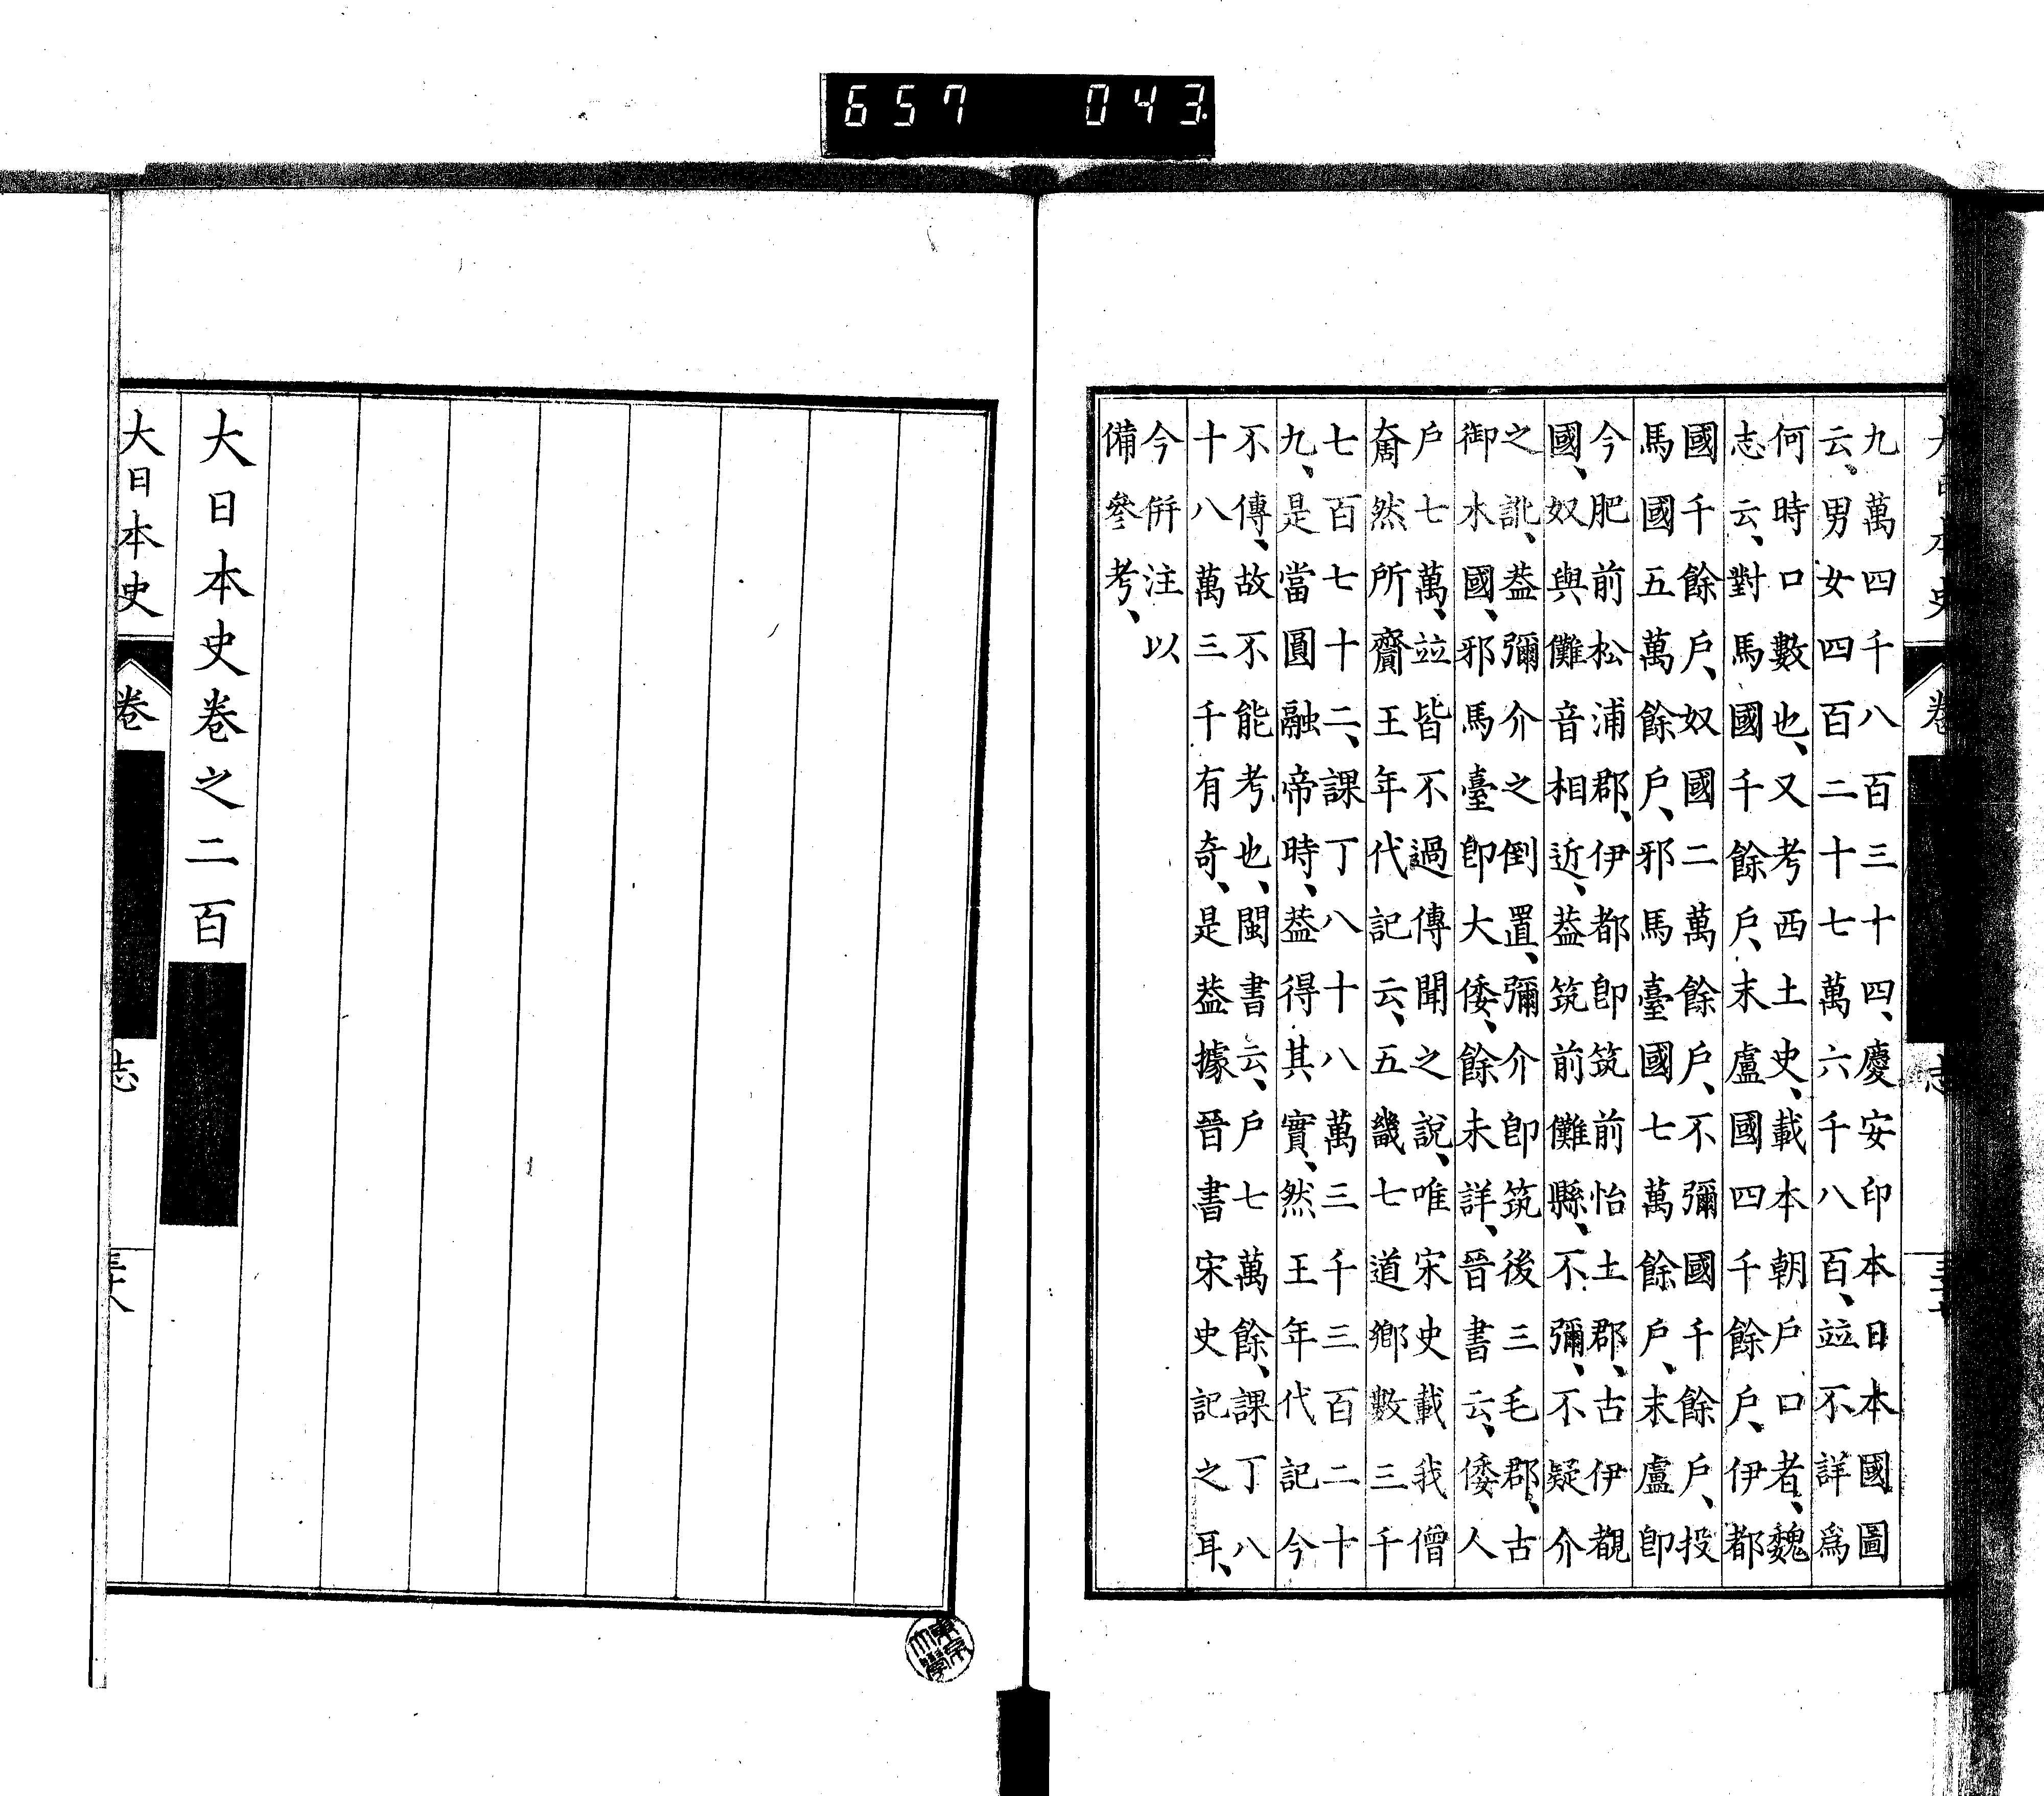 657 043
九萬四千八百三十四、慶安印本日本國圖
云。男女四百二十七萬六千八百、竝不詳爲
何時口數也、又考西土史、載本朝戶口者、魏
志云、對馬國千餘戶、末盧國四千餘戶、伊都
國千餘戶、奴國二萬餘戶、不彌國千餘戶、投
馬國五萬餘戶、邪馬臺國七萬餘戶、末盧卽
今肥前松浦郡、伊都卽筑前怡土郡、古伊覩
國、奴與儺音相近、葢筑前儺縣、不彌、不疑介
之訛、葢彌介之倒置、彌介卽筑後三毛郡、古
御水國、邪馬臺卽大倭、餘未詳、晉書云、倭人
戶七萬、竝皆不過傳聞之說、唯宋史載我僧
奝然所齎王年代記云、五畿七道鄉數三千
七百七十二、課丁八十八萬三千三百二十
九、是當圓融帝時、葢得其實、然王年代記今
不傳、故不能考也、閩書云、戶七萬餘、課丁八
十八萬三千有奇、是葢據晉書宋史記之耳、
今倂注以
備參考、
大日本史卷之二百
大日本史
卷
志